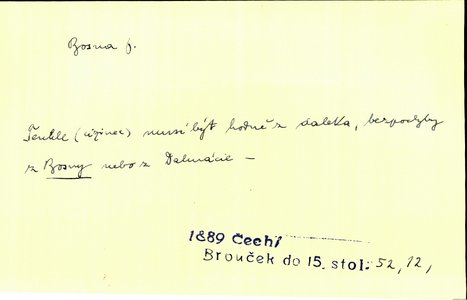 Bosna f.
Tenhle (cizinec) musí být hodně z daleka, bezpochyby
z Bosny nebo z Dalmácie —
1889 Čech1
Brouček do 15. stol. 52, 12,